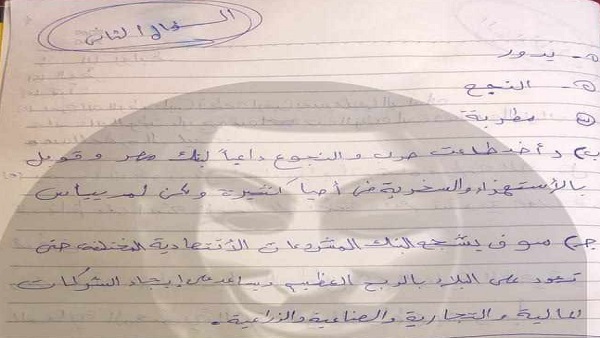 السؤال الثانى
أ- يدور
- النجع
- مطربة
ب) وأخذ طلعت حرب والنجوع داعياً لبنك مصر وقوبل
بالأستهزاء والسخرية فى أحيان كثيرة ولكن لم ييأس
جـ) سوف يشجع البنك المشروعات الأقتصادية المختلفة حتى
تعود على البلاد بالربح العظيم ويساعد على إيجاد الشركات
المالية والتجارية والصناعية والزراعية.